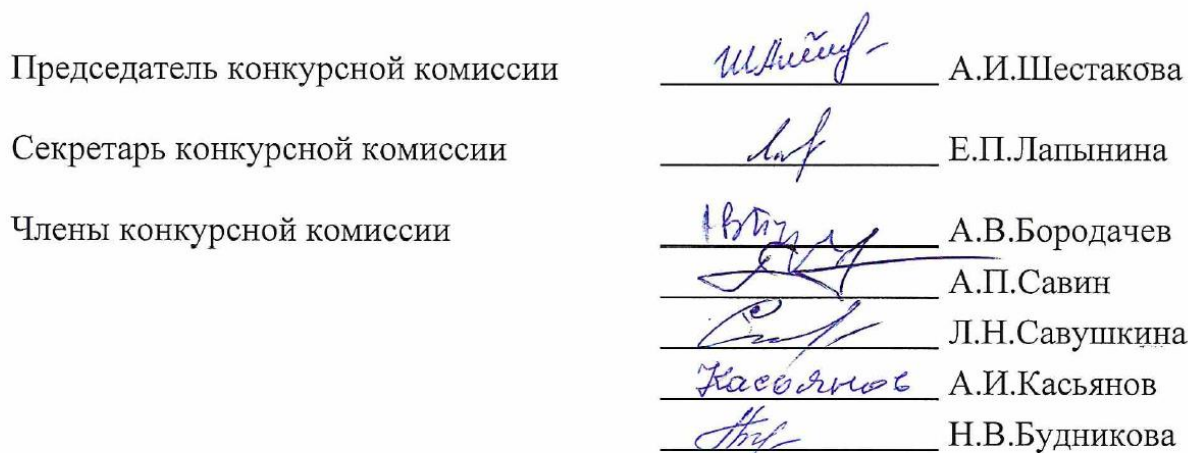 Председатель конкурсной комиссии А.И.Шестакова
Секретарь конкурсной комиссии Е.П.Лапынина
Члены конкурсной комиссии А.В.Бородачев
А.П.Савин
Л.Н.Савушкина
Касьянов А.И.Касьянов
Н.В.Будникова